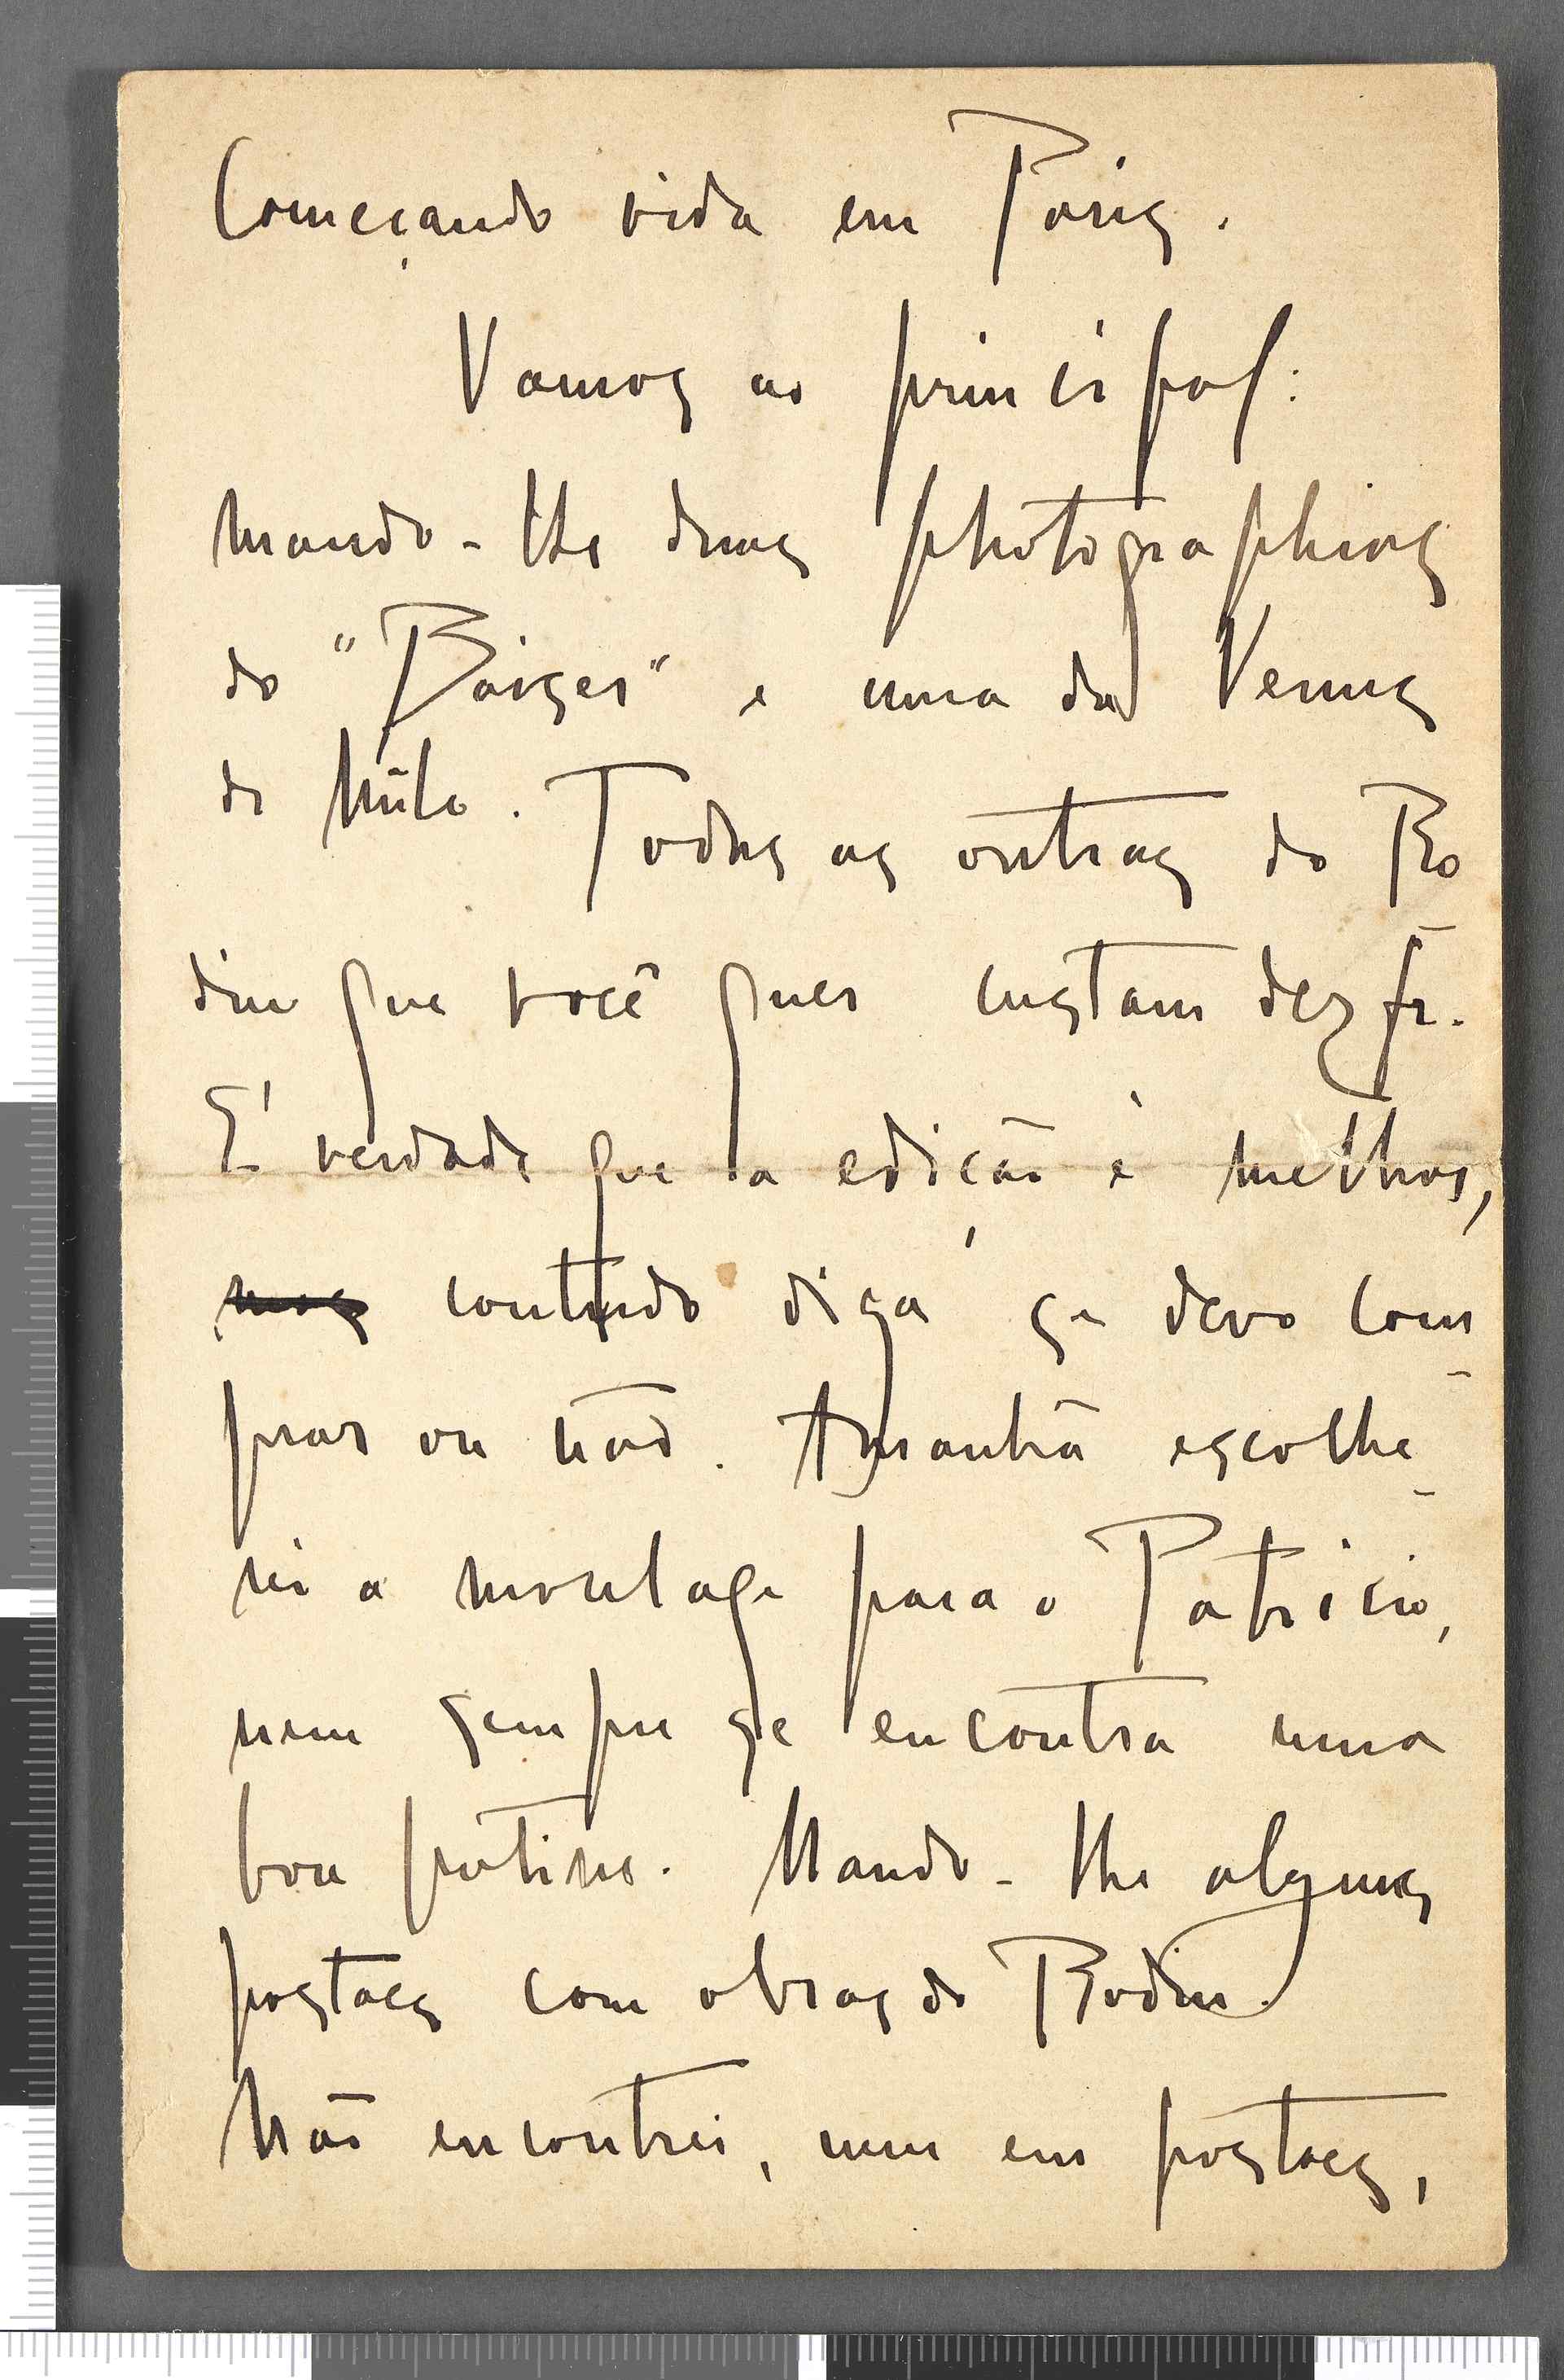 Começando vida em Paris.
Vamos ao principal:
mando-lhe duas photographias
do "Baiser" e uma da Venus
de Milo. Todas as outras do Ro
din que você quer custam dez fr.
É verdade que a edição é melhor,
mas contudo diga se devo com-
prar ou não. Amanhã escolhe-
rei a moulage para o Patricio,
nem sempre se encontra uma
boa patine. Mando-lhe algumas
postaes com obras do Rodin.
Não encontrei, nem em postaes,